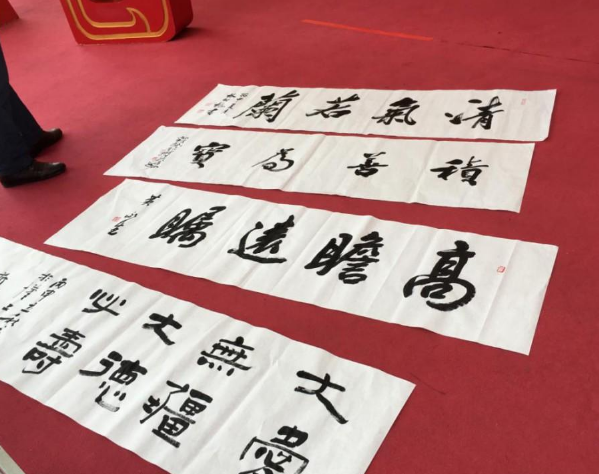 清氣若蘭
積善為寶
高瞻遠矚
大愛
無疆
大德
必壽
丙申